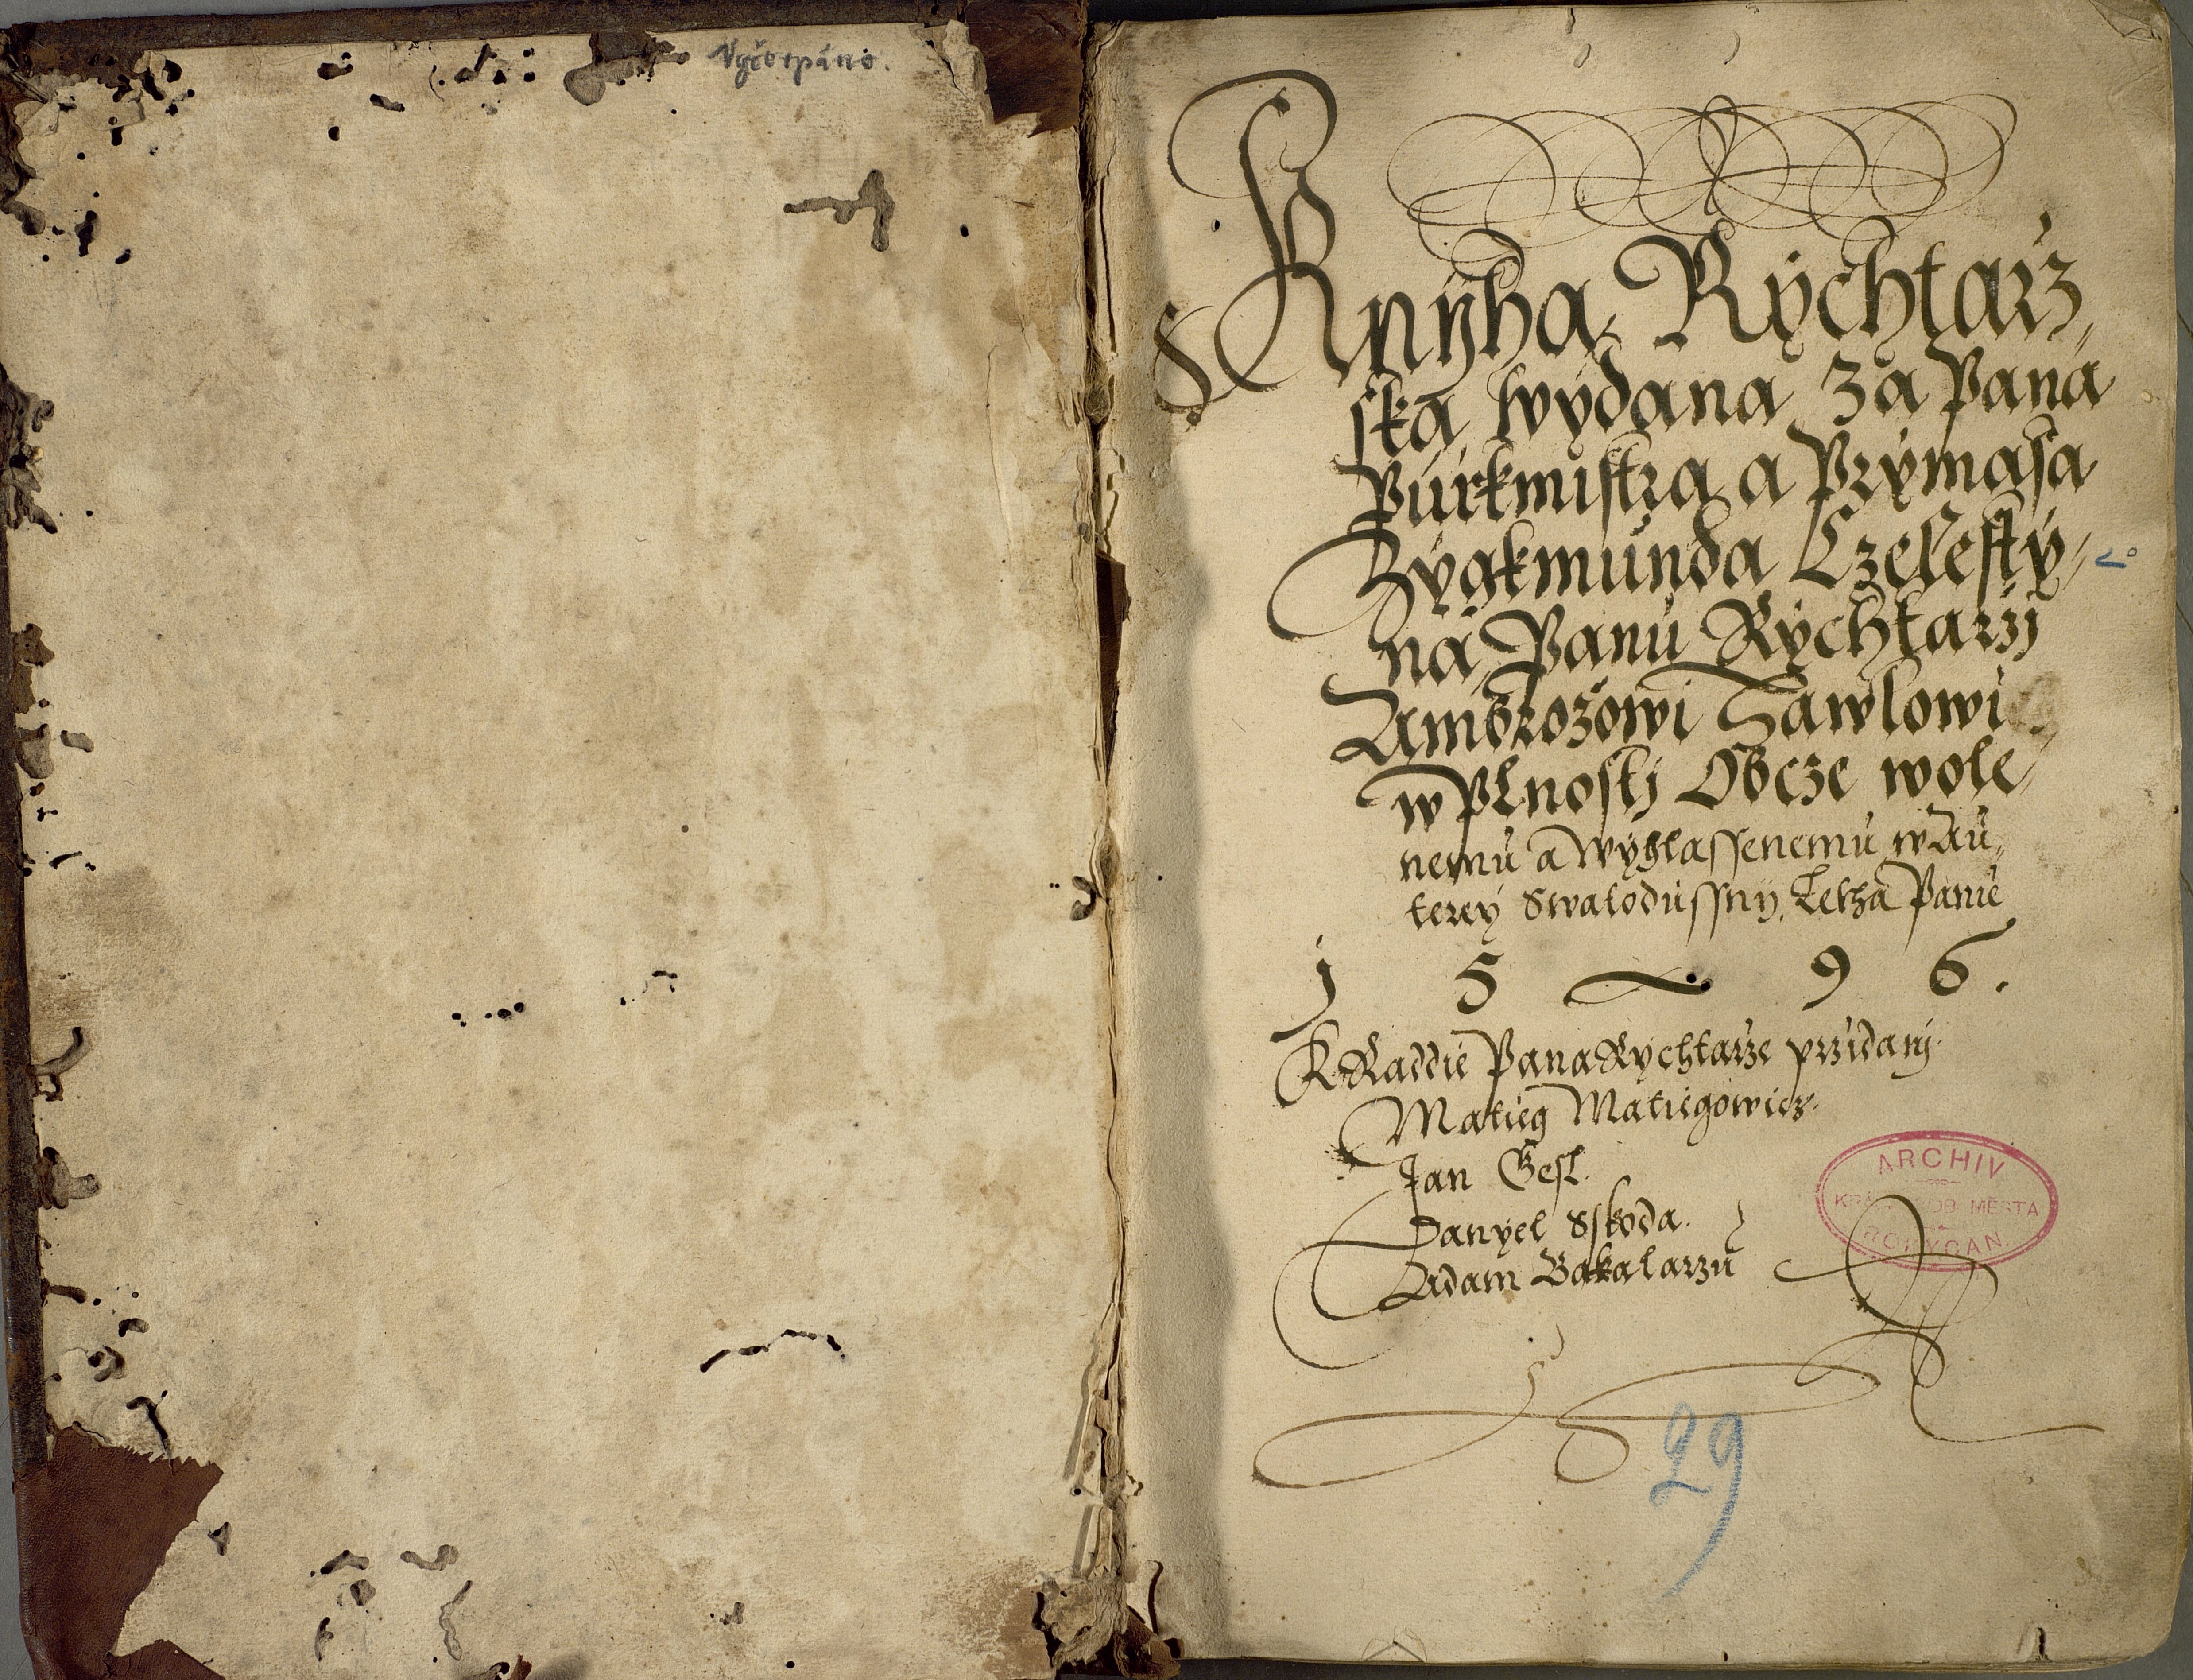 Vyčerpáno.
Knÿha Rÿchtarz„
ska wÿdana za Pana
Púrkmistra a Prÿmasa
Zÿgkmúnda Czelestÿ„
na, Panú Rÿchtarzj
Ambrozowi Hawlowi
w Plnostj Obcze wole„
nemú a wÿhlassenemú w Aú„
tereÿ Swatodússnÿ. Letha Panie
1 5 9 6.
K Raddie Pana Rychtarze przidanj.
Matieg Matiegowicz.
Jan Gesl.
Danyel Sskoda.
Adam Bakalarzú
ARCHIV
KRÁL. HOB. MĚSTA
ROKYCAN.
29
1